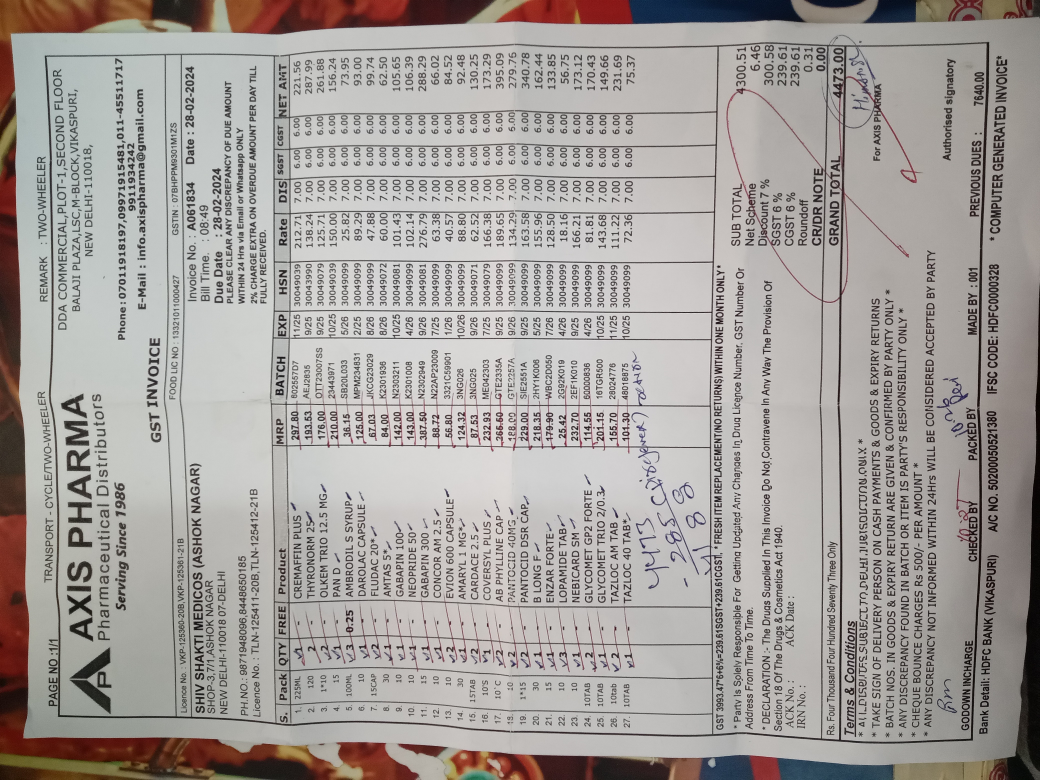 PAGE NO :1/1
TRANSPORT - CYCLE/TWO-WHEELER
REMARK : TWO-WHEELER
AXIS PHARMA
Pharmaceutical Distributors
Serving Since 1986
DDA COMMERCIAL,PLOT-1,SECOND FLOOR
BALAJI PLAZA,LSC,M-BLOCK,VIKASPURI,
NEW DELHI-110018,
Phone:07011918197,09971915481,011-45511717
9911934242
E-Mail : info.axispharma@gmail.com
GST INVOICE
Licence No. : VKP-125360-20B,VKP-125361-21B
FOOD LIC NO : 13321011000427
GSTIN : 07BHPPM9301M1ZS
SHIV SHAKTI MEDICOS (ASHOK NAGAR)
SHOP-3,7/1,ASHOK NAGAR
NEW DELHI-110018 07-DELHI
PH.NO.: 9871948096,8448650185
Licence No. : TLN-125411-20B,TLN-125412-21B
Invoice No.: A061834 Date : 28-02-2024
Bill Time. : 08:49
Due Date : 28-02-2024
PLEASE CLEAR ANY DISCREPANCY OF DUE AMOUNT
WITHIN 24 Hrs via Email or Whatsapp ONLY
2% CHARGE EXTRA ON OVERDUE AMOUNT PER DAY TILL
FULLY RECEIVED.
S. Pack QTY FREE Product MRP BATCH EXP HSN Rate DIS SGST CGST NET AMT
1. 225ML 1 - CREMAFFIN PLUS 297.80 602567D7 11/25 30049039 212.71 7.00 6.00 6.00 221.56
2. 120 2 - THYRONORM 25 193.53 AEJ2835 9/25 30043990 138.24 7.00 6.00 6.00 287.99
3. 1*10 2 - OLKEM TRIO 12.5 MG 176.00 OTT23007SS 9/25 30049079 125.71 7.00 6.00 6.00 261.88
4. 15 1 - PAN D 210.00 23443971 10/25 30049099 150.00 7.00 6.00 6.00 156.24
5. 100ML 3 0.25 AMBRODIL S SYRUP 36.15 SB20L033 5/26 30049099 25.82 7.00 6.00 6.00 73.95
6. 10 1 - DAROLAC CAPSULE 125.00 MPM234831 2/25 30049099 89.29 7.00 6.00 6.00 93.00
7. 15CAP 2 - FLUDAC 20* 67.03 JKCG23029 8/26 30049099 47.88 7.00 6.00 6.00 99.74
8. 30 1 - AMTAS 5* 84.00 K2301936 8/26 30049072 60.00 7.00 6.00 6.00 62.50
9. 10 1 - GABAPIN 100 142.00 N2303211 10/25 30049081 101.43 7.00 6.00 6.00 105.65
10. 10 1 - NEOPRIDE 50 143.00 K2301008 4/26 30049099 102.14 7.00 6.00 6.00 106.39
11. 15 1 - GABAPIN 300 387.50 N2302949 9/26 30049081 276.79 7.00 6.00 6.00 288.29
12. 10 1 - CONCOR AM 2.5 88.72 N22AP23009 7/25 30049099 63.38 7.00 6.00 6.00 66.02
13. 10 2 - EVION 600 CAPSULE 56.80 3321C59901 1/26 30049099 40.57 7.00 6.00 6.00 84.52
14. 30 1 - AMARYL 1 MG* 124.32 3NG026 10/26 30049099 88.80 7.00 6.00 6.00 92.48
15. 15TAB 2 - CARDACE 2.5 87.53 3NG025 9/26 30049071 62.52 7.00 6.00 6.00 130.25
16. 10'S 1 - COVERSYL PLUS 232.93 ME042303 7/25 30049079 166.38 7.00 6.00 6.00 173.29
17. 10' C 2 - AB PHYLLINE CAP GTE2335A 9/25 30049099 189.65 7.00 6.00 6.00 395.09
18. 10 2 - PANTOCID 40MG 188.00 GTE2257A 9/26 30049099 134.29 7.00 6.00 6.00 279.76
19. 1*15 2 - PANTOCID DSR CAP 229.00 SIE2551A 9/25 30049099 163.58 7.00 6.00 6.00 340.78
20. 30 1 - B LONG F 218.35 2HY1K006 5/25 30049099 155.96 7.00 6.00 6.00 162.44
21. 15 1 - ENZAR FORTE 179.90 WBC2D050 7/26 30049099 128.50 7.00 6.00 6.00 133.85
22. 10 3 - LOPAMIDE TAB 25.42 2G92K019 4/26 30049099 18.16 7.00 6.00 6.00 56.75
23. 10 1 - NEBICARD SM 232.70 2EF1K010 9/25 30049099 166.21 7.00 6.00 6.00 173.12
24. 10TAB 2 - GLYCOMET GP2 FORTE 114.55 60000836 4/26 30049099 81.81 7.00 6.00 6.00 170.43
25. 10TAB 1 - GLYCOMET TRIO 2/0.3 201.15 16TGR500 10/25 30049099 143.68 7.00 6.00 6.00 149.66
26. 10tab 2 - TAZLOC AM TAB 155.70 28024776 11/25 30049099 111.22 7.00 6.00 6.00 231.69
27. 10TAB 1 - TAZLOC 40 TAB* 101.30 48018875 10/25 30049099 72.36 7.00 6.00 6.00 75.37
4473
GST 3993.47*6+6%=239.61SGST+239.61CGST, * FRESH ITEM REPLACEMENT(NO RETURNS) WITHIN ONE MONTH ONLY*
* Party Is Solely Responsible For Getting Updated Any Changes In Drug Licence Number, GST Number Or
Address From Time To Time.
* DECLARATION :- The Drugs Supplied In This Invoice Do Not Contravene In Any Way The Provision Of
Section 18 Of The Drugs & Cosmetics Act 1940.
ACK No. : ACK Date :
IRN No. :
SUB TOTAL 4300.51
Net Scheme 6.46
Discount 7 % 300.58
SGST 6 % 239.61
CGST 6 % 239.61
Roundoff 0.31
CR/DR NOTE 0.00
GRAND TOTAL 4473.00
Rs. Four Thousand Four Hundred Seventy Three Only
Terms & Conditions
* ALL DISPUTES SUBJECT TO DELHI JURISDICTION ONLY *
* TAKE SIGN OF DELIVERY PERSON ON CASH PAYMENTS & GOODS & EXPIRY RETURNS
* BATCH NOS. IN GOODS & EXPIRY RETURN ARE GIVEN & CONFIRMED BY PARTY ONLY *
* ANY DISCREPANCY FOUND IN BATCH OR ITEM IS PARTY'S RESPONSIBILITY ONLY *
* CHEQUE BOUNCE CHARGES Rs 500/- PER AMOUNT *
* ANY DISCREPANCY NOT INFORMED WITHIN 24Hrs WILL BE CONSIDERED ACCEPTED BY PARTY
For AXIS PHARMA
Authorised signatory
GODOWN INCHARGE CHECKED BY PACKED BY MADE BY : 001 PREVIOUS DUES : 7640.00
Bank Detail: HDFC BANK (VIKASPURI) A/C NO. 50200050521380 IFSC CODE: HDFC0000328 * COMPUTER GENERATED INVOICE*